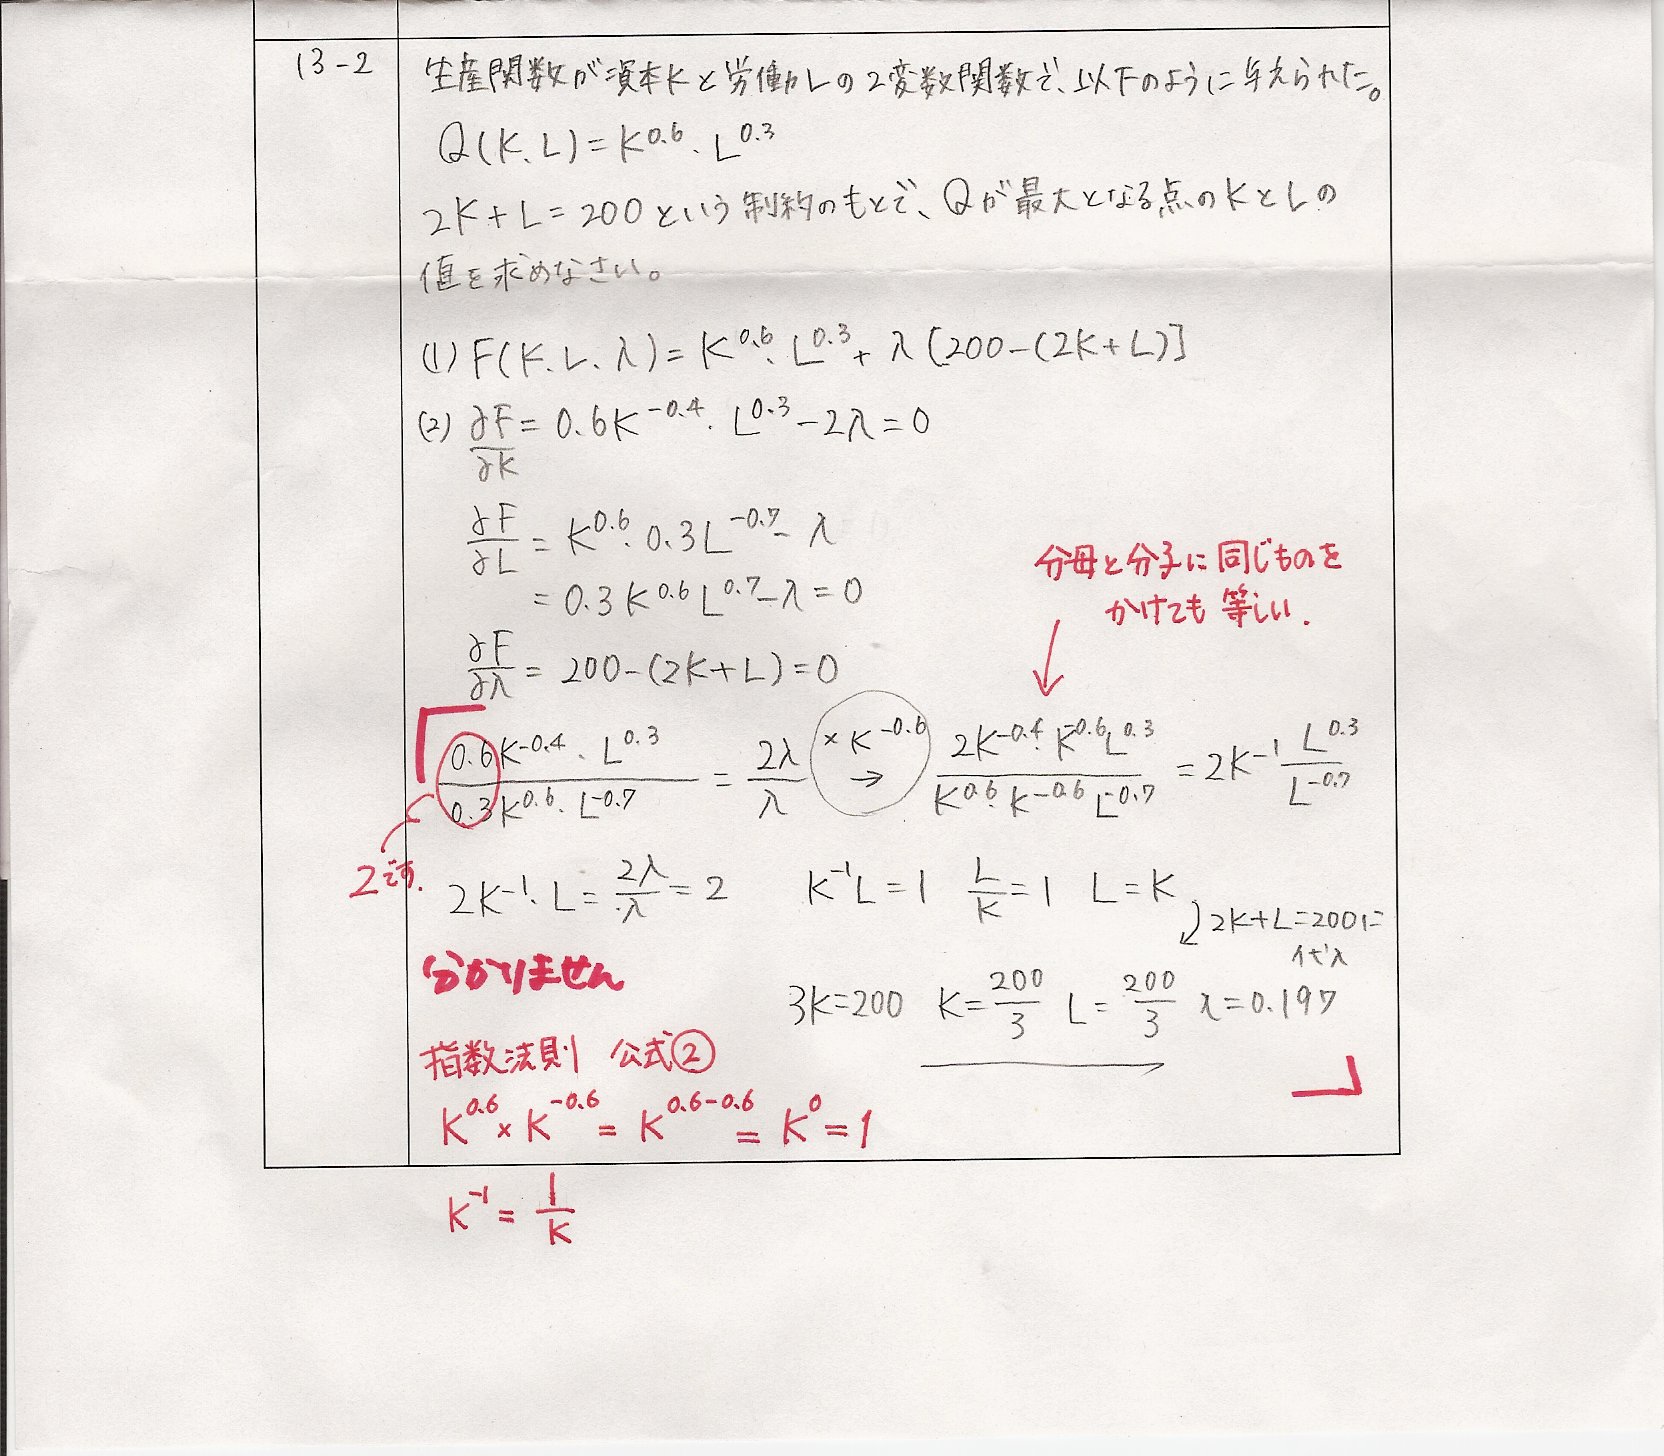 13-2
生産関数が資本Kと労働Lの2変数関数で、以下のように与えられた。
Q(K、L)=K^0.6・L^0.3
2K+L=200という制約のもとで、Qが最大となる点のKとLの
値を求めなさい。
(1) F(K、L、λ)=K^0.6・L^0.3+λ[200-(2K+L)]
(2) ∂F/∂K=0.6K^-0.4・L^0.3-2λ=0
∂F/∂L=K^0.6・0.3L^-0.7-λ
=0.3K^0.6L^0.7-λ=0
分母と分子に同じものを
かけても等しい.
↓
∂F/∂λ=200-(2K+L)=0
0.6K^-0.4・L^0.3/0.3K^0.6・L^-0.7=2λ/λ ×K^-0.6→ 2K^-0.4・K^-0.6L^0.3/K^0.6・K^-0.6L^-0.7=2K^-1 L^0.3/L^-0.7
2です.
2K^-1・L=2λ/λ=2 K^-1L=1 L/K=1 L=K
2K+L=200に
代入
分かりません
3K=200 K=200/3 L=200/3 λ=0.197
指数法則 公式②
K^0.6×K^-0.6=K^0.6-0.6=K^0=1
K^-1=1/K